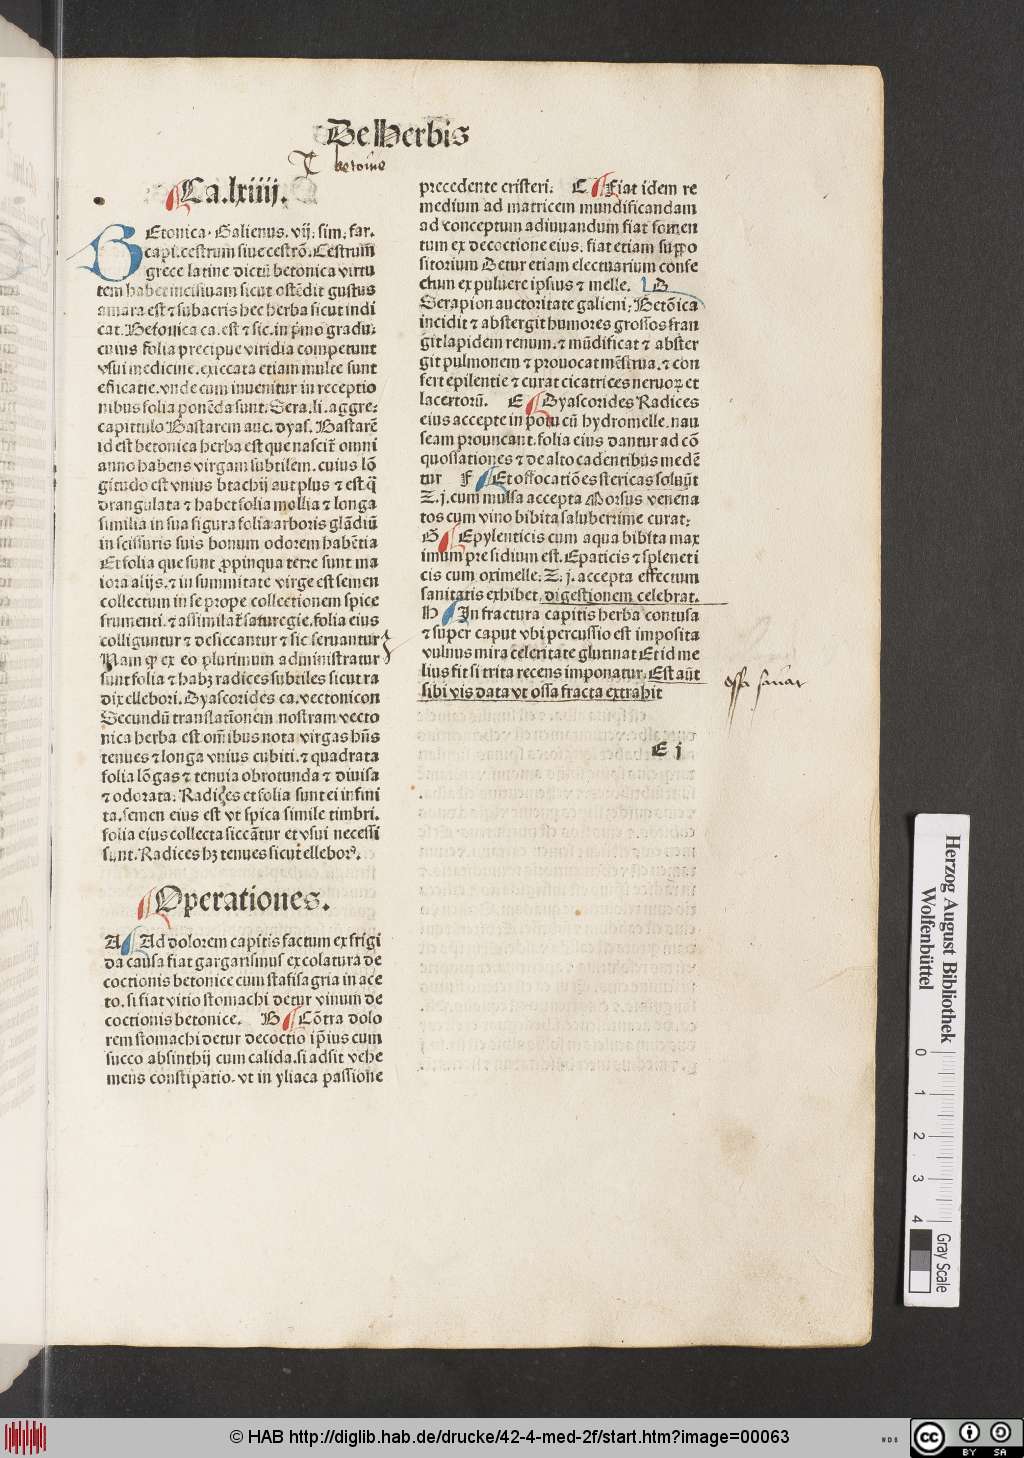 De Herbis
betoine
Ca.lxiiij.
BEtonica. Galienus. vij. sim. far.
capi. cestrum siue cestrō. Cestrum
grece latine dictū betonica virtu
tem habet incisiuam sicut ostēdit gustus
amara est ⁊ subacris hec herba sicut indi
cat. Betonica ca. est ⁊ sic. in p̄mo gradu:
cuius folia precipue viridia competunt
vsui medicine. exiccata etiam multe sunt
efficatie. vnde cum inuenitur in receptio
nibus folia ponēda sunt. Sera. li. aggre:
capittulo Bastarem auc. dyas. Bastarē
id est betonica herba est que nascit᷑ omni
anno habens virgam subtilem. cuius lō
gitudo est vnius brachij aut plus ⁊ est q̄
drangulata ⁊ habet folia mollia ⁊ longa
similia in sua figura folia arboris glādiū
in scissuris suis bonum odorem habētia
Et folia que sunt ꝓpinqua terre sunt ma
iora alijs. ⁊ in summitate virge est semen
collectum in se prope collectionem spice
frumenti. ⁊ assimilat᷑ saturegie. folia eius
colliguntur ⁊ desiccantur ⁊ sic seruantur
Nam ꝙ ex eo plurimum administratur
sunt folia ⁊ habꝫ radices subtiles sicut ra
dix ellebori. Dyascorides ca. vectonicon
Secundū translatiōnem nostram vecto
nica herba est om̄ibus nota virgas hn̄s
tenues ⁊ longa vnius cubiti. ⁊ quadrata
folia lōgas ⁊ tenuia obrotunda ⁊ diuisa
⁊ odorata. Radices et folia sunt ei infini
ta. semen eius est vt spica simile timbri.
folia eius collecta siccātur et vsui necessi
sunt. Radices hꝫ tenues sicut ellebor⁹.
Operationes.
A Ad dolorem capitis factum ex frigi
da causa fiat gargarismus ex colatura de
coctionis betonice cum stafisagria in ace
to. si fiat vitio stomachi detur vinum de
coctionis betonice. B Cōtra dolo
rem stomachi detur decoctio ip̄ius cum
succo absinthij cum calida. si adsit vehe
mens constipatio. vt in yliaca passione
precedente cristeri: C Fiat idem re
medium ad matricem mundificandam
ad conceptum adiuuandum fiat fomen
tum ex decoctione eius. fiat etiam suppo
sitorium Detur etiam electuarium confe
ctum ex puluere ipsius ⁊ melle. D
Serapion auctoritate galieni: Betōica
incidit ⁊ abstergit humores grossos fran
git lapidem renum. ⁊ mūdificat ⁊ abster
git pulmonem ⁊ prouocat mēstrua. ⁊ con
fert epilentie ⁊ curat cicatrices neruoꝝ et
lacertorū. E Dyascorides Radices
eius accepte in potu cū hydromelle. nau
seam prouncant. folia eius dantur ad cō
quossationes ⁊ de alto cadentibus medē
tur F Et offocatiōes stericas soluūt
Z. j. cum mulsa accepta Morsus venena
tos cum vino bibita saluberrime curat:
G Epylenticis cum aqua bibita max
imum presidium est. Epaticis ⁊ spleneti
cis cum oximelle: Z. j. accepta effectum
sanitatis exhibet. digestionem celebrat.
H In fractura capitis herba contusa
⁊ super caput vbi percussio est imposita
vulnus mira celeritate glutinat Et id me
lius fit si trita recens imponatur. Est aūt
sibi vis data vt ossa fracta extrahit
ossa sanat
E j
Herzog August Bibliothek
Wolfenbüttel
0 1 2 3 4
Gray Scale
© HAB http://diglib.hab.de/drucke/42-4-med-2f/start.htm?image=00063
WDB
cc BY SA